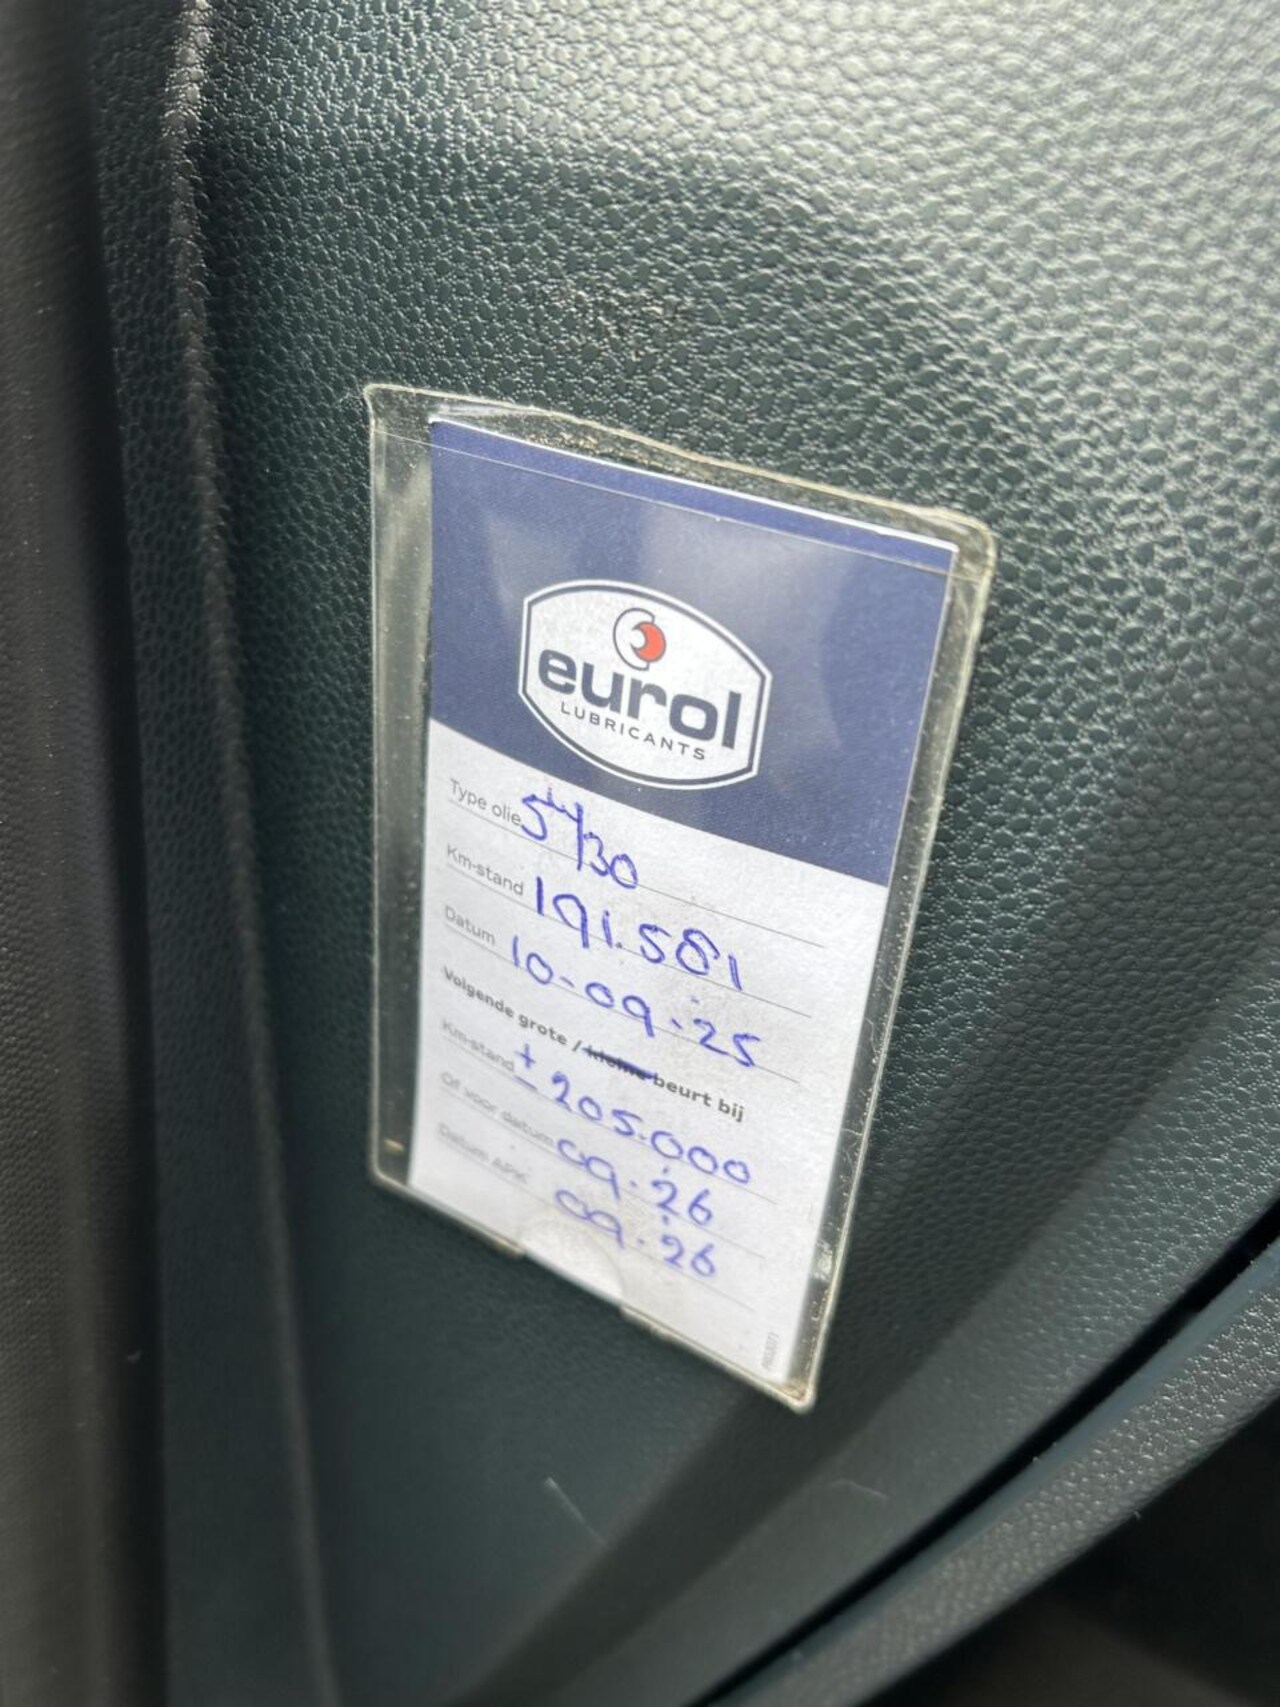 eurol
LUBRICANTS
Type olie 5w/30
Km-stand 191.581
Datum 10-09-25
Volgende grote / kleine beurt bij
Km-stand ± 205.000
Of voor datum 09.26
Datum APK 09.26